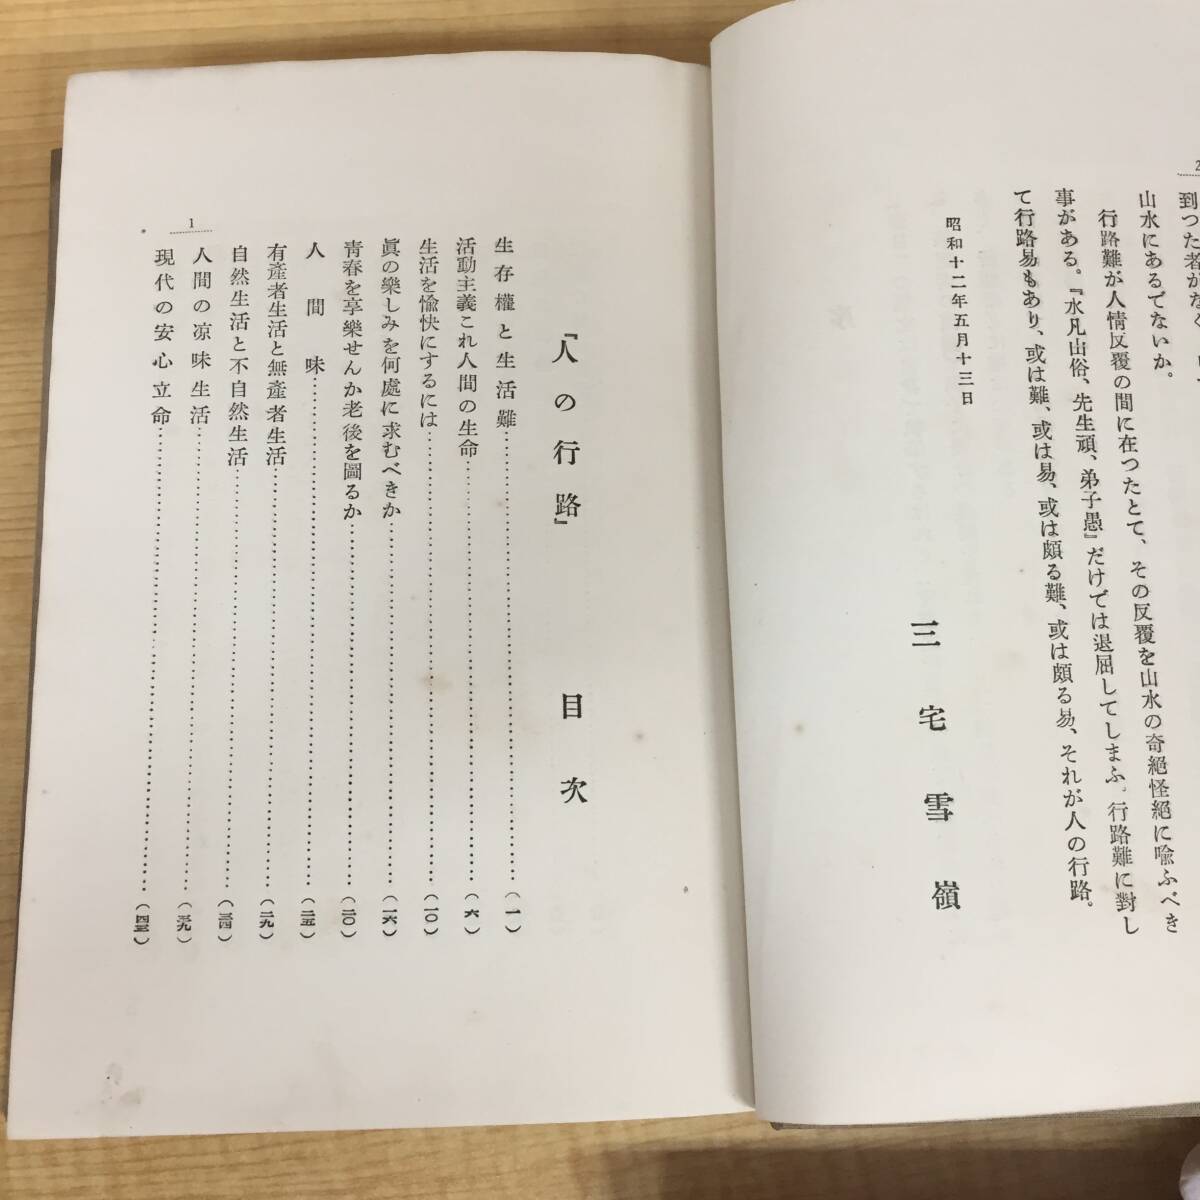 2
到つた者がなく
山水にあるでないか。
行路難が人情反覆の間に在つたとて、その反覆を山水の奇絕怪絕に喩ふべき
事がある。『水凡山俗、先生頑、弟子愚』だけでは退屈してしまふ。行路難に對し
て行路易もあり、或は難、或は易、或は頗る難、或は頗る易、それが人の行路。
昭和十二年五月十三日
三宅雪嶺
『人の行路』 目次
生存權と生活難……(一)
活動主義これ人間の生命……(六)
生活を愉快にするには……(一〇)
眞の樂しみを何處に求むべきか……(一六)
靑春を享樂せんか老後を圖るか……(二〇)
人間味……(二五)
有產者生活と無產者生活……(二九)
自然生活と不自然生活……(三四)
人間の凉味生活……(三九)
現代の安心立命……(四三)
1